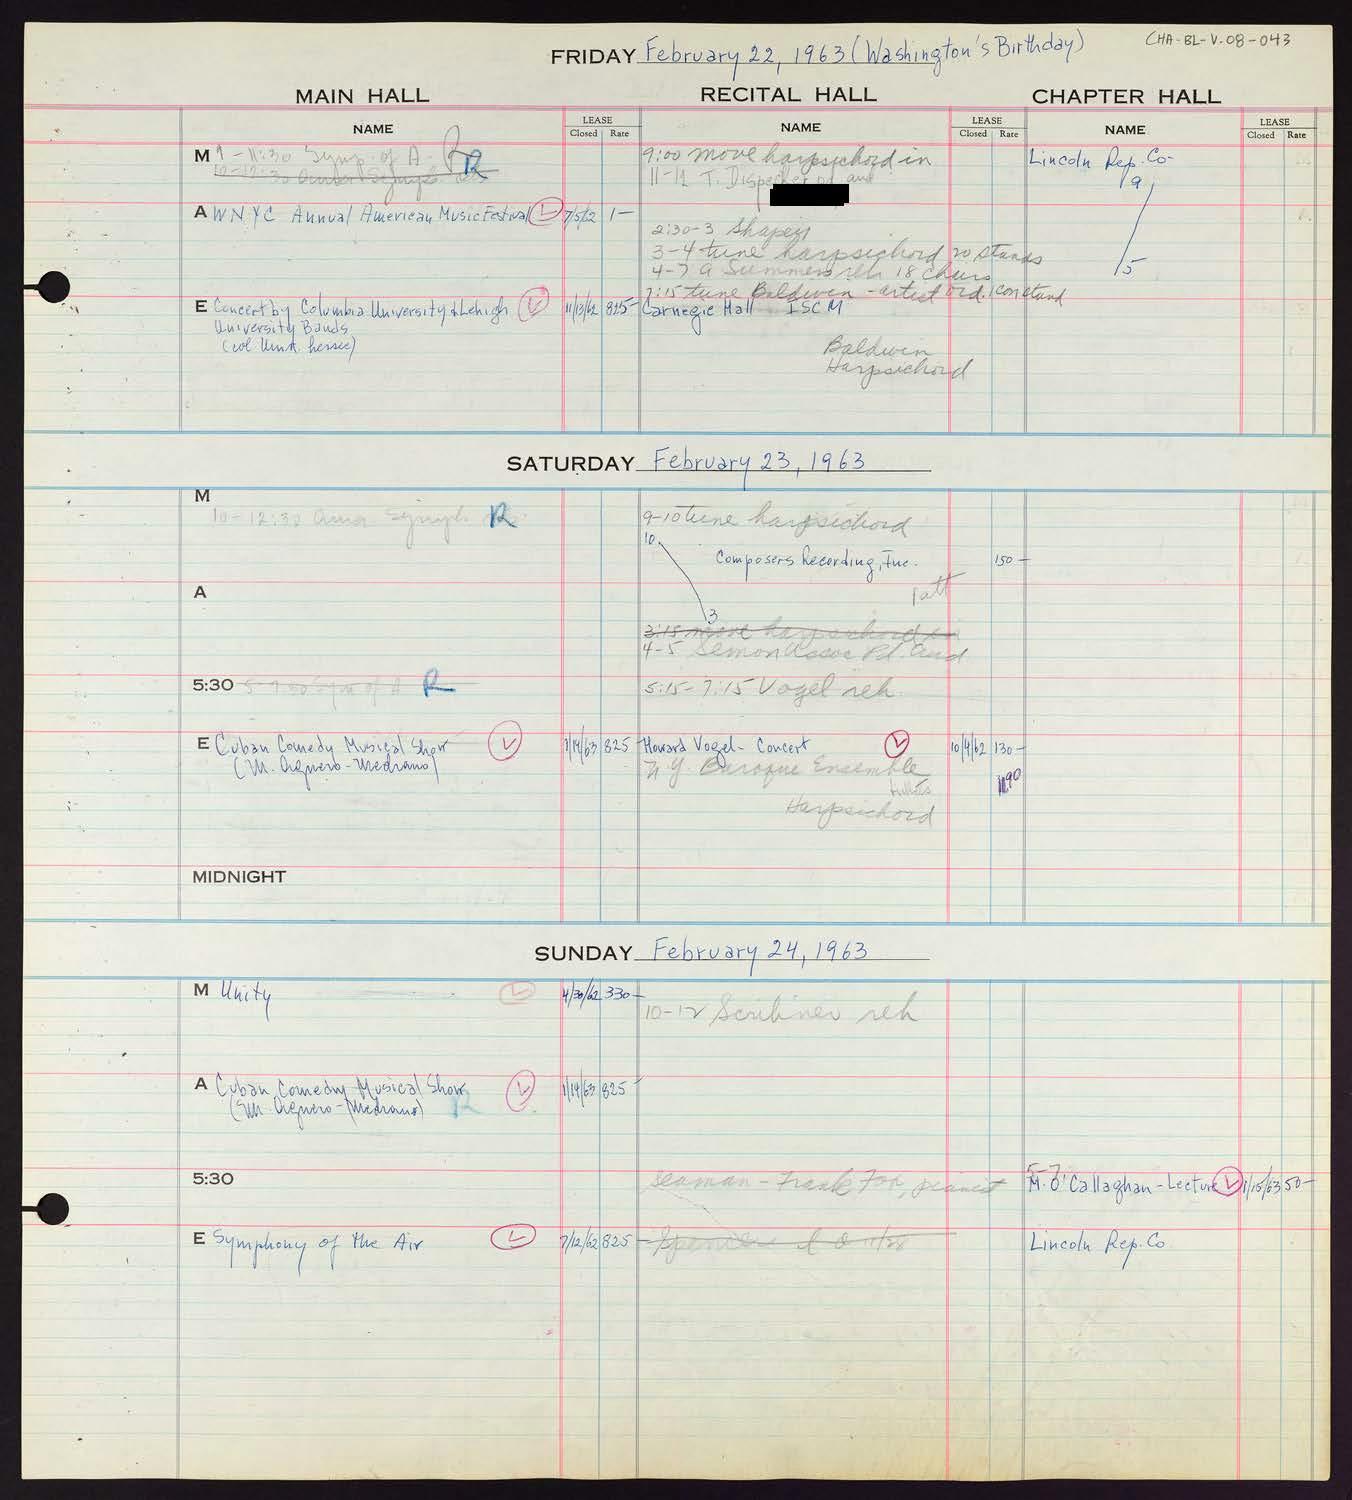 CHA-BL-V.08-043
FRIDAY February 22, 1963 (Washington's Birthday)
MAIN HALL
RECITAL HALL
CHAPTER HALL
NAME
LEASE
Closed Rate
NAME
LEASE
Closed Rate
NAME
LEASE
Closed Rate
M 9-11:30 Symp. of A. R
10-12:30 Amer Symph
9:00 move harpsichord in
11-12 T. Dispecker
Lincoln Rep. Co-
9
5
A WNYC Annual American Music Festival 7/5/62 1—
2:30-3 Shapey
3-4 tune harpsichord 20 stands
4-7 a Summers reh 18 chairs
7:15 tune Baldwin - artist ord. 1 con stand
E Concert by Columbia University & Lehigh 11/13/62 825-
University Bands
(Col Univ. lessee)
Carnegie Hall ISCM
Baldwin
Harpsichord
SATURDAY February 23, 1963
M
10-12:30 Amer Symph R
9-10 tune harpsichord
10
Composers Recording, Inc. 150-
A
3
3:15 move harpsichord in
4-5 Semon Assoc Pd. Aud
5:30 5-7:30 Sym of A R
5:15-7:15 Vogel reh
E Cuban Comedy Musical Show 1/14/63 825
(M. Aguero-Medrano)
Howard Vogel- Concert 10/4/62 130-
N.Y. Baroque Ensemble
Harpsichord
MIDNIGHT
SUNDAY February 24, 1963
M Unity 4/30/62 330-
10-12 Scribner reh
A Cuban Comedy Musical Show 1/14/63 825
(M. Aguero-Medrano) R
5:30
Seaman - Frank Fox, pianist
5-7
M. O'Callaghan - Lecture 1/15/63 50-
E Symphony of the Air 7/12/62 825-
Lincoln Rep. Co